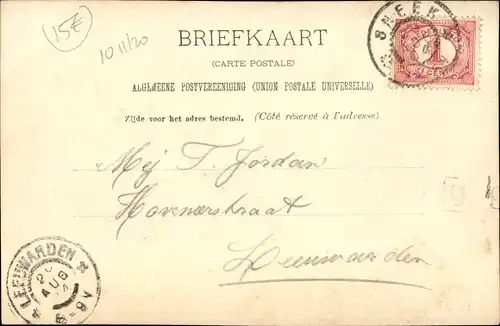 15€
10 11/20
SNEEK
BRIEFKAART
(CARTE POSTALE)
ALGEMEENE POSTVEREENIGING (UNION POSTALE UNIVERSELLE)
Zijde voor het adres bestemd. (Côté réservé à l'adresse).
1
Mej T. Jordan
Hovenerstraat
Leeuwarden
LEEUWARDEN
AUG
8-9V